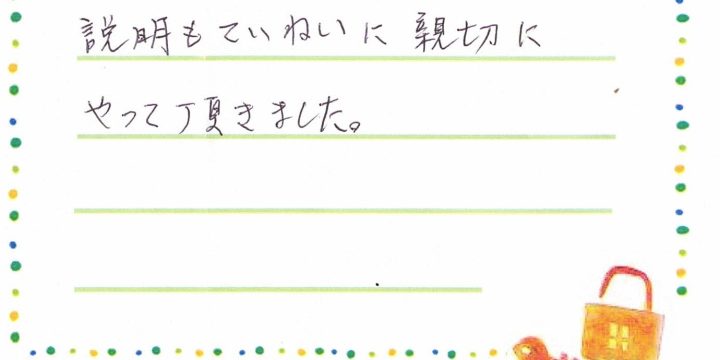 説明もていねいに 親切に
やって頂きました。